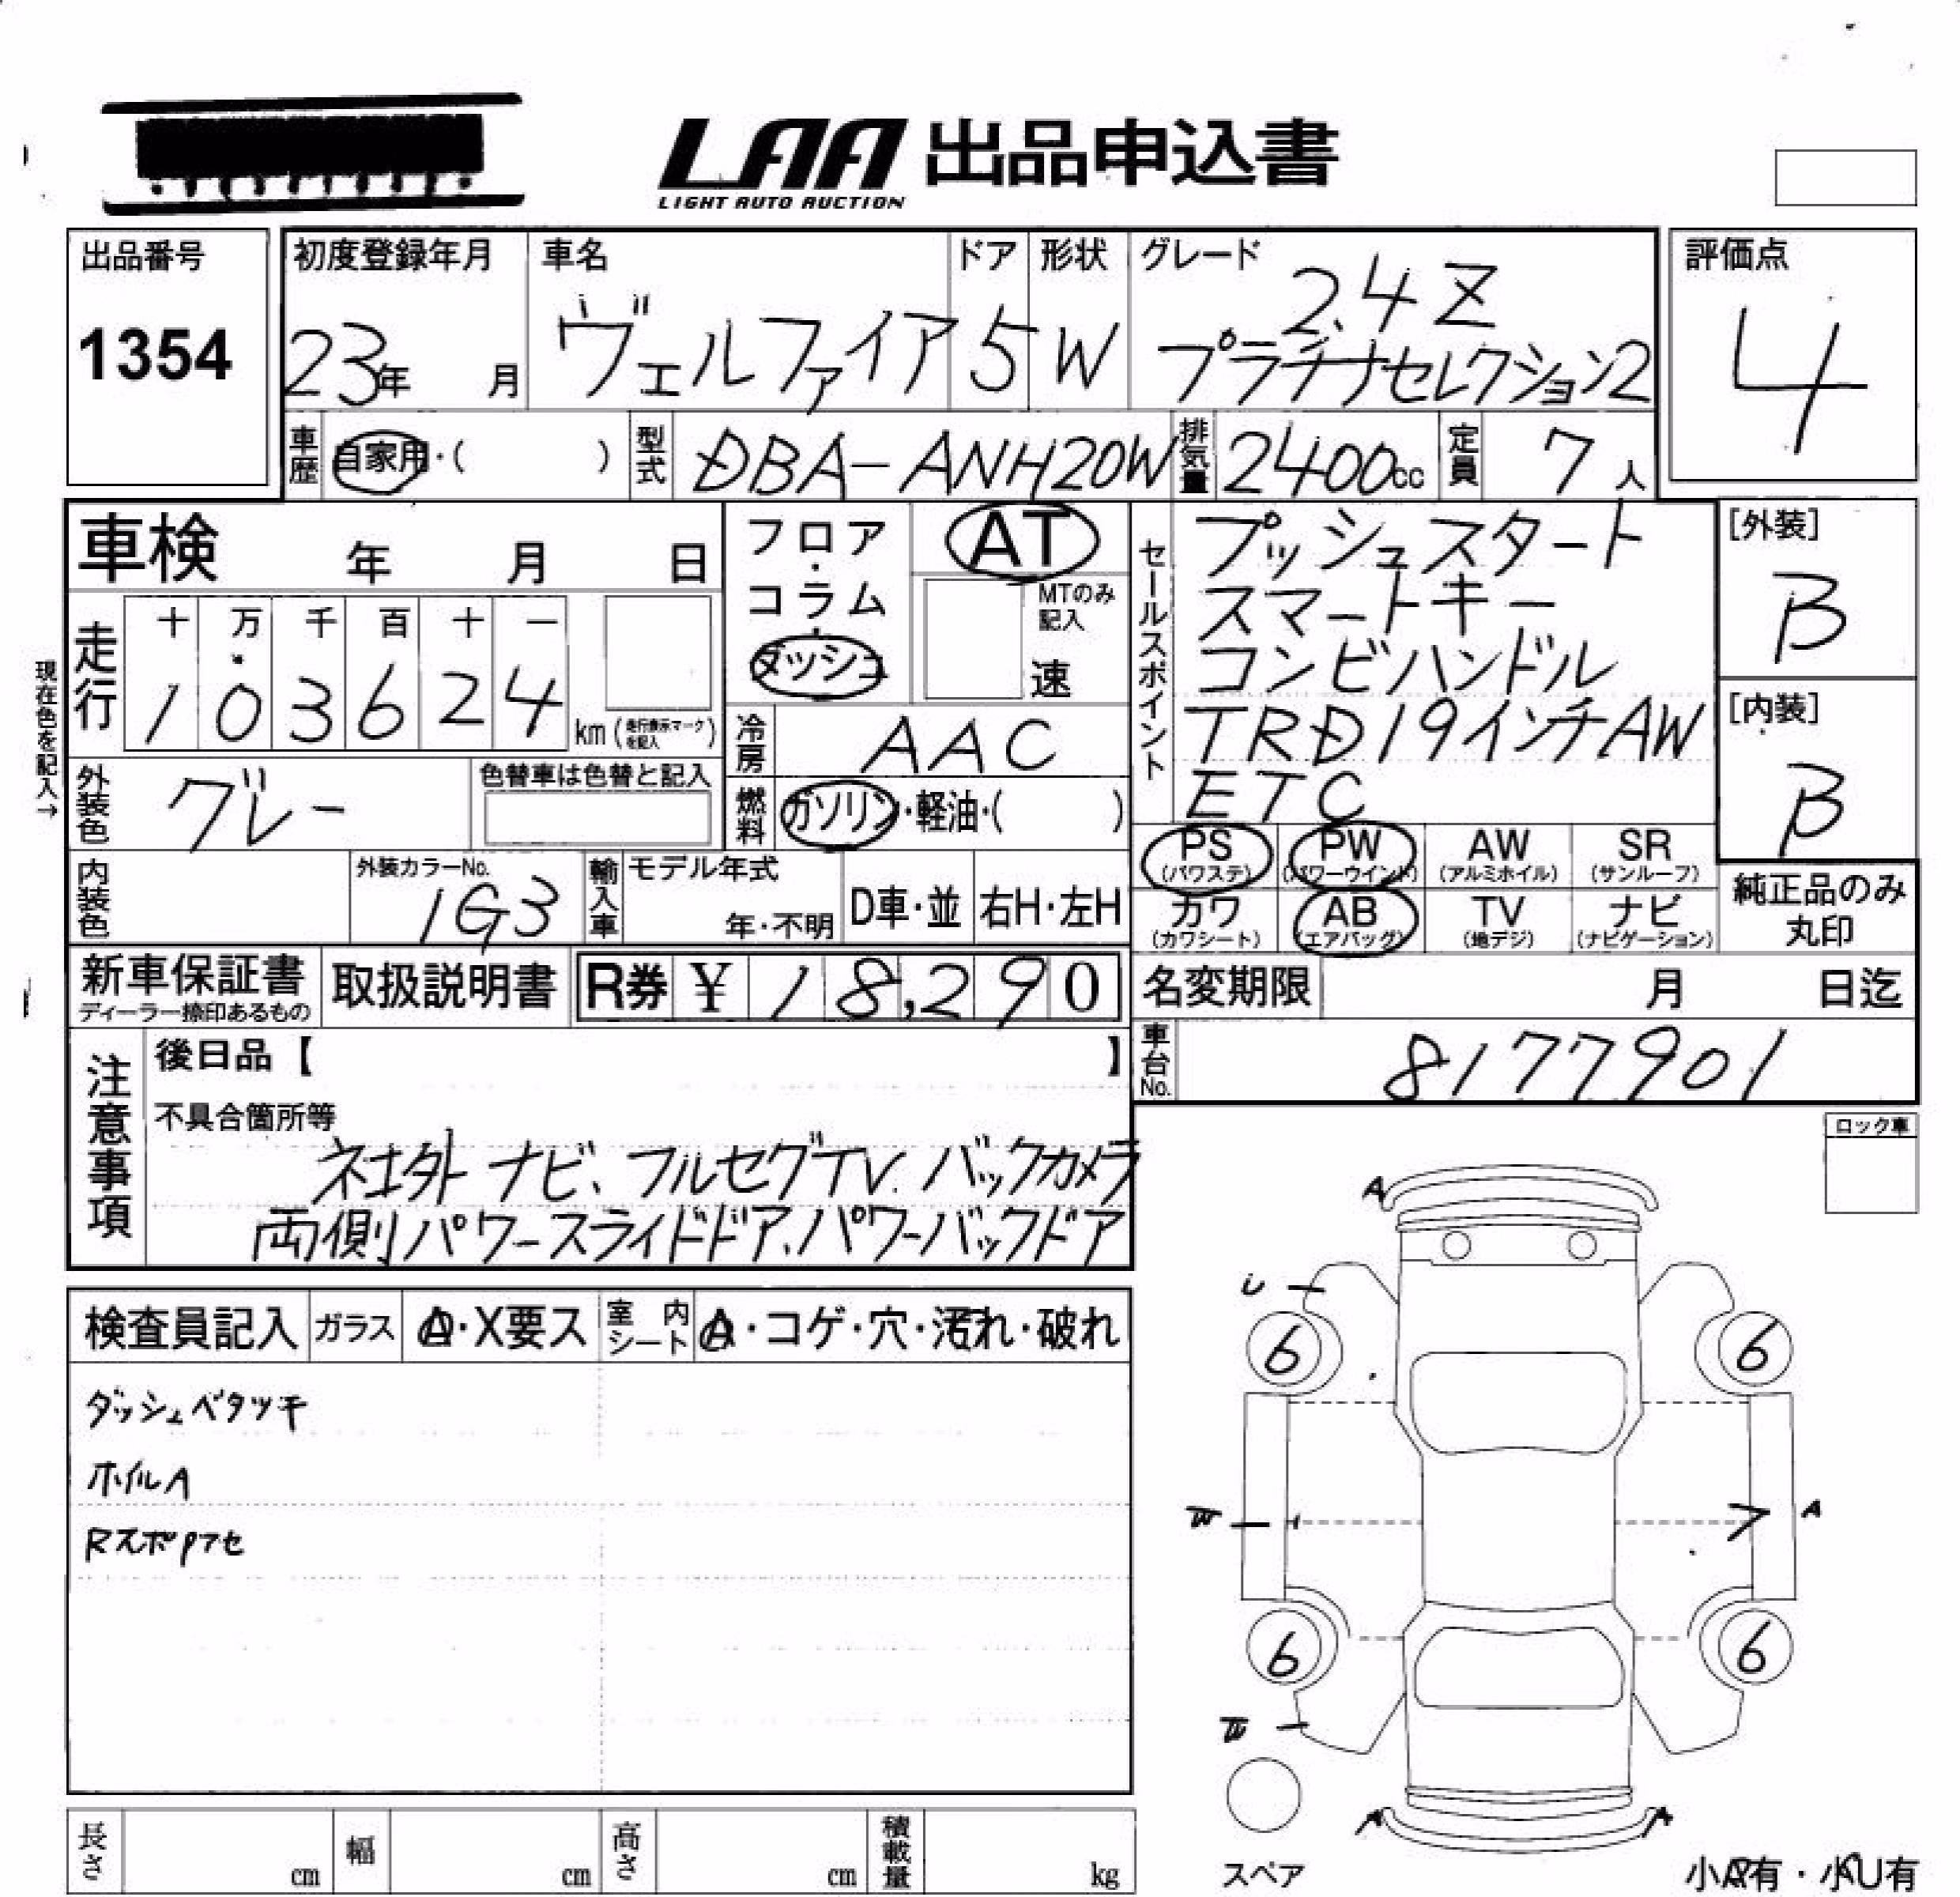 LAA 出品申込書
LIGHT AUTO AUCTION
出品番号
1354
初度登録年月
23年 月
車名
ヴェルファイア
ドア
5
形状
W
グレード
2.4 Z
プラチナセレクション2
評価点
4
車歴 自家用・( )
型式 DBA-ANH20W
排気量 2400cc
定員 7人
車検 年 月 日
フロア・
コラム・
ダッシュ
AT
MTのみ
記入
速
セールスポイント
プッシュスタート
スマートキー
コンビハンドル
TRD19インチAW
ETC
[外装]
B
[内装]
B
現在色を記入→
走行
十 万 千 百 十 一
1 0 3 6 2 4 km(走行表示マークを記入)
冷房 AAC
外装色 グレー
色替車は色替と記入
燃料 ガソリン・軽油・( )
PS
(パワステ)
PW
(パワーウインド)
AW
(アルミホイル)
SR
(サンルーフ)
カワ
(カワシート)
AB
(エアバッグ)
TV
(地デジ)
ナビ
(ナビゲーション)
純正品のみ
丸印
内装色
外装カラーNo.
1G3
輸入車
モデル年式
年・不明
D車・並
右H・左H
新車保証書
ディーラー捺印あるもの
取扱説明書
R券 ¥ 18,290
名変期限 月 日迄
車台No. 8177901
注意事項
後日品【 】
不具合箇所等
社外ナビ、フルセグTV、バックカメラ
両側パワースライドドア、パワーバックドア
ロック車
検査員記入 ガラス A・X要ス 室内シート A・コゲ・穴・汚れ・破れ
ダッシュベタツキ
ホイルA
RスポPアセ
A
U
6 6
W
A
6 6
W
A A
スペア
長さ cm 幅 cm 高さ cm 積載量 kg
小A有・小U有